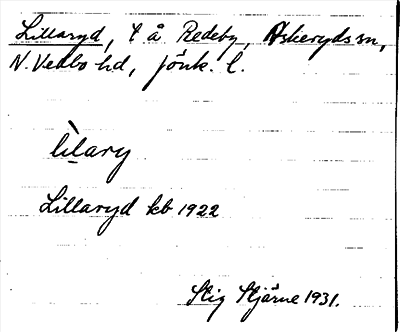 Lillaryd, t å Redeby, Askeryds sn,
N. Vedbo hd, Jönk. l.
lìlary
Lillaryd kb 1922
Stig Stjärne 1931.